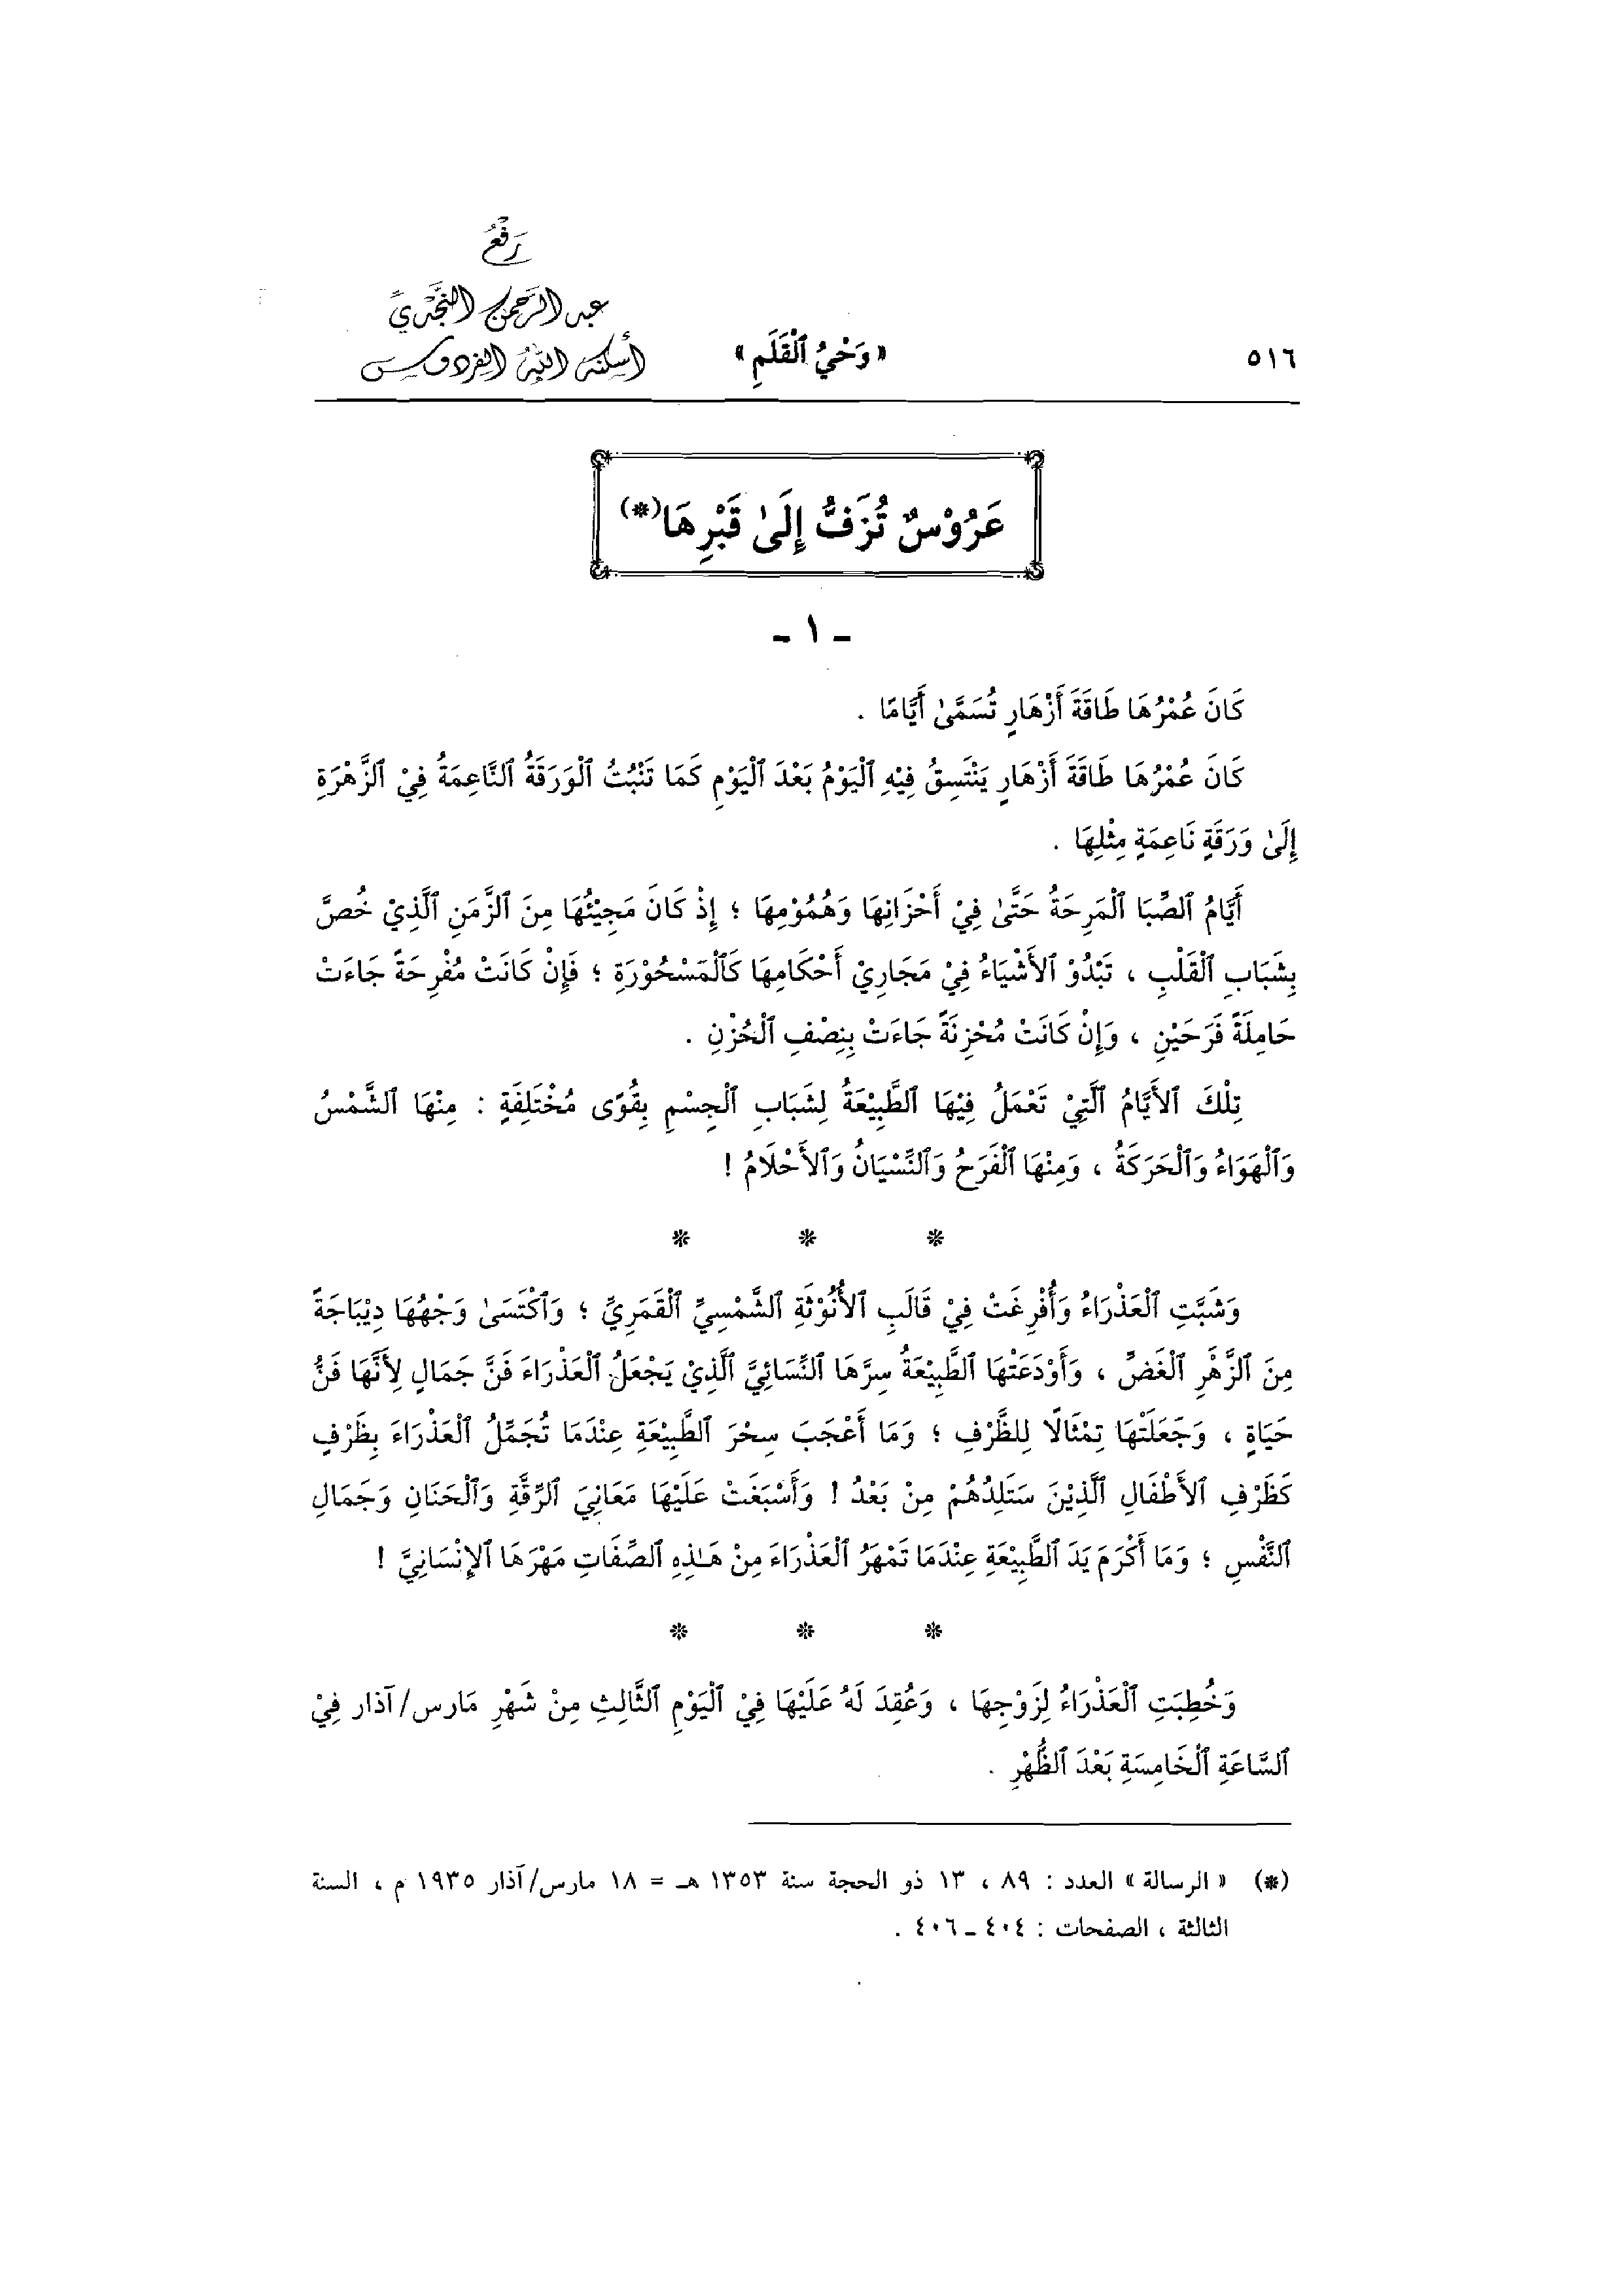 رَفْعُ
عبد الرَّحمن النَّجْديّ
أسكنه اللهُ الفردوس
٥١٦
« وَحْيُ ٱلْقَلَمِ »
عَرُوْسٌ تُزَفُّ إِلَىٰ قَبْرِهَا(*)
- ١ -
كَانَ عُمْرُهَا طَاقَةَ أَزْهَارٍ تُسَمَّىٰ أَيَّامًا .
كَانَ عُمْرُهَا طَاقَةَ أَزْهَارٍ يَنْتَسِقُ فِيْهِ ٱلْيَوْمُ بَعْدَ ٱلْيَوْمِ كَمَا تَنْبُتُ ٱلْوَرَقَةُ ٱلنَّاعِمَةُ فِيْ ٱلزَّهْرَةِ
إِلَىٰ وَرَقَةٍ نَاعِمَةٍ مِثْلِهَا .
أَيَّامُ ٱلصِّبَا ٱلْمَرِحَةُ حَتَّىٰ فِيْ أَحْزَانِهَا وَهُمُوْمِهَا ؛ إِذْ كَانَ مَجِيْئُهَا مِنَ ٱلزَّمَنِ ٱلَّذِيْ خُصَّ
بِشَبَابِ ٱلْقَلْبِ ، تَبْدُوْ ٱلأَشْيَاءُ فِيْ مَجَارِيْ أَحْكَامِهَا كَٱلْمَسْحُوْرَةِ ؛ فَإِنْ كَانَتْ مُفْرِحَةً جَاءَتْ
حَامِلَةً فَرَحَيْنِ ، وَإِنْ كَانَتْ مُحْزِنَةً جَاءَتْ بِنِصْفِ ٱلْحُزْنِ .
تِلْكَ ٱلأَيَّامُ ٱلَّتِيْ تَعْمَلُ فِيْهَا ٱلطَّبِيْعَةُ لِشَبَابِ ٱلْجِسْمِ بِقُوًى مُخْتَلِفَةٍ : مِنْهَا ٱلشَّمْسُ
وَٱلْهَوَاءُ وَٱلْحَرَكَةُ ، وَمِنْهَا ٱلْفَرَحُ وَٱلنِّسْيَانُ وَٱلأَحْلَامُ !
* * *
وَشَبَّتِ ٱلْعَذْرَاءُ وَأُفْرِغَتْ فِيْ قَالَبِ ٱلأُنُوْثَةِ ٱلشَّمْسِيِّ ٱلْقَمَرِيِّ ؛ وَٱكْتَسَىٰ وَجْهُهَا دِيْبَاجَةً
مِنَ ٱلزَّهْرِ ٱلْغَضِّ ، وَأَوْدَعَتْهَا ٱلطَّبِيْعَةُ سِرَّهَا ٱلنِّسَائِيَّ ٱلَّذِيْ يَجْعَلُ ٱلْعَذْرَاءَ فَنَّ جَمَالٍ لِأَنَّهَا فَنُّ
حَيَاةٍ ، وَجَعَلَتْهَا تِمْثَالًا لِلظَّرْفِ ؛ وَمَا أَعْجَبَ سِحْرَ ٱلطَّبِيْعَةِ عِنْدَمَا تُجَمِّلُ ٱلْعَذْرَاءَ بِظَرْفٍ
كَظَرْفِ ٱلأَطْفَالِ ٱلَّذِيْنَ سَتَلِدُهُمْ مِنْ بَعْدُ ! وَأَسْبَغَتْ عَلَيْهَا مَعَانِيَ ٱلرِّقَّةِ وَٱلْحَنَانِ وَجَمَالِ
ٱلنَّفْسِ ؛ وَمَا أَكْرَمَ يَدَ ٱلطَّبِيْعَةِ عِنْدَمَا تَمْهَرُ ٱلْعَذْرَاءَ مِنْ هَـٰذِهِ ٱلصِّفَاتِ مَهْرَهَا ٱلإِنْسَانِيَّ !
* * *
وَخُطِبَتِ ٱلْعَذْرَاءُ لِزَوْجِهَا ، وَعُقِدَ لَهُ عَلَيْهَا فِيْ ٱلْيَوْمِ ٱلثَّالِثِ مِنْ شَهْرِ مَارس/آذار فِيْ
ٱلسَّاعَةِ ٱلْخَامِسَةِ بَعْدَ ٱلظُّهْرِ .
(*) « الرسالة » العدد : ٨٩ ، ١٣ ذو الحجة سنة ١٣٥٣ هـ = ١٨ مارس/آذار ١٩٣٥ م ، السنة
الثالثة ، الصفحات : ٤٠٤ - ٤٠٦ .